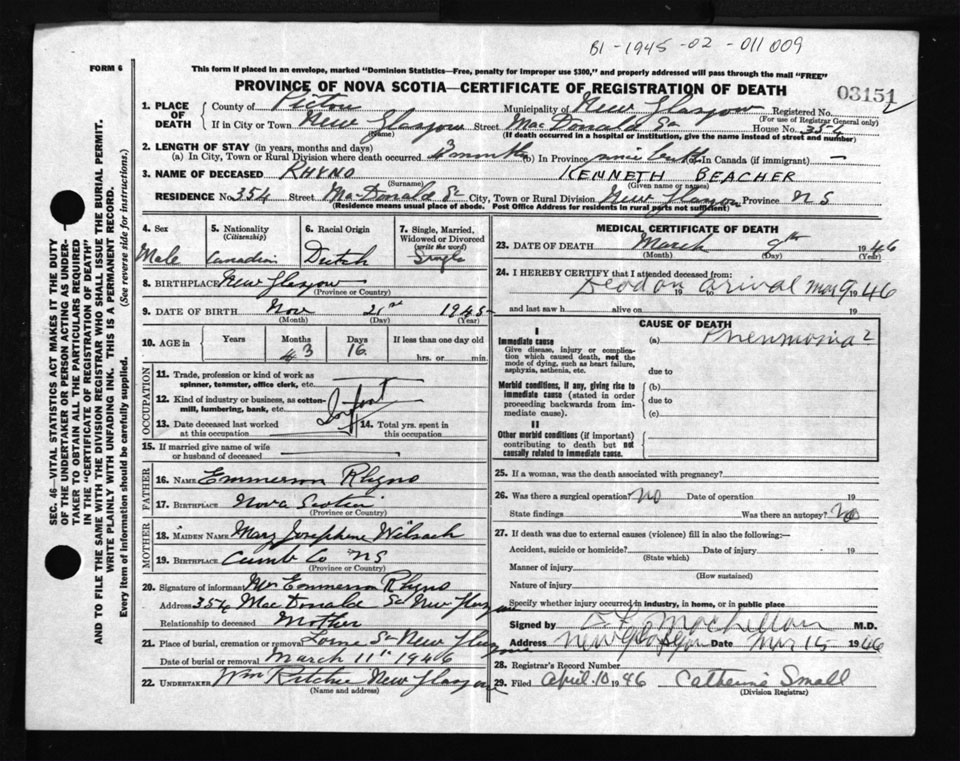 B1-1945-02-011009
FORM 6
This form if placed in an envelope, marked "Dominion Statistics—Free, penalty for improper use $300," and properly addressed will pass through the mail "FREE"
PROVINCE OF NOVA SCOTIA—CERTIFICATE OF REGISTRATION OF DEATH
03151
1. PLACE OF DEATH
County of Pictou Municipality of New Glasgow Registered No.
(For use of Registrar General only)
If in City or Town New Glasgow Street MacDonald St House No. 354
(Name) (If death occurred in a hospital or institution, give the name instead of street and number)
2. LENGTH OF STAY (in years, months and days)
(a) In City, Town or Rural Division where death occurred 3 months (b) In Province since birth (c) In Canada (if immigrant) —
3. NAME OF DECEASED RHYNO KENNETH BEACHER
(Surname) (Given name or names)
RESIDENCE No. 354 Street MacDonald St City, Town or Rural Division New Glasgow Province N S
(Residence means usual place of abode. Post Office Address for residents in rural parts not sufficient)
4. Sex
Male
5. Nationality
(Citizenship)
Canadian
6. Racial Origin
Dutch
7. Single, Married, Widowed or Divorced
(write the word)
Single
8. BIRTHPLACE New Glasgow
(Province or Country)
9. DATE OF BIRTH Nov 21st 1945
(Month) (Day) (Year)
10. AGE in
Years Months Days If less than one day old
3 16 hrs. or min.
OCCUPATION
11. Trade, profession or kind of work as
spinner, teamster, office clerk, etc.
12. Kind of industry or business, as cotton-
mill, lumbering, bank, etc. Infant
13. Date deceased last worked
at this occupation
14. Total yrs. spent in
this occupation
15. If married give name of wife
or husband of deceased
FATHER
16. NAME Emmerson Rhyno
17. BIRTHPLACE Nova Scotia
(Province or Country)
MOTHER
18. MAIDEN NAME Mary Josephine
19. BIRTHPLACE Cumb Co NS
(Province or Country)
20. Signature of informant Mrs Emmerson Rhyno
Address 354 MacDonald St New Glasgow
Relationship to deceased Mother
21. Place of burial, cremation or removal Lorne St New Glasgow
Date of burial or removal March 11th 1946
22. UNDERTAKER Wm Ritchie New Glasgow
(Name and address)
MEDICAL CERTIFICATE OF DEATH
23. DATE OF DEATH March 9th 1946
(Month) (Day) (Year)
24. I HEREBY CERTIFY that I attended deceased from:
Dead on arrival Mar 9 1946
and last saw h alive on 19
CAUSE OF DEATH
I
Immediate cause
Give disease, injury or complica-
tion which caused death, not the
mode of dying, such as heart failure,
asphyxia, asthenia, etc.
(a) Pneumonia
due to
Morbid conditions, if any, giving rise to
immediate cause (stated in order
proceeding backwards from im-
mediate cause).
(b)
due to
(c)
II
Other morbid conditions (if important)
contributing to death but not
causally related to immediate cause.
25. If a woman, was the death associated with pregnancy?
26. Was there a surgical operation? No Date of operation 19
State findings Was there an autopsy? No
27. If death was due to external causes (violence) fill in also the following:—
Accident, suicide or homicide? Date of injury 19
(State which)
Manner of injury
(How sustained)
Nature of injury
Specify whether injury occurred in industry, in home, or in public place
Signed by M.D.
Address New Glasgow Date Mar 15 1946
28. Registrar's Record Number
29. Filed April 10 1946 Catherine Small
(Division Registrar)
SEC. 46—VITAL STATISTICS ACT MAKES IT THE DUTY
OF THE UNDERTAKER OR PERSON ACTING AS UNDER-
TAKER TO OBTAIN ALL THE PARTICULARS REQUIRED
IN THE "CERTIFICATE OF REGISTRATION OF DEATH"
AND TO FILE THE SAME WITH THE DIVISION REGISTRAR WHO SHALL ISSUE THE BURIAL PERMIT.
WRITE PLAINLY WITH UNFADING INK. THIS IS A PERMANENT RECORD.
Every item of information should be carefully supplied. (See reverse side for instructions.)